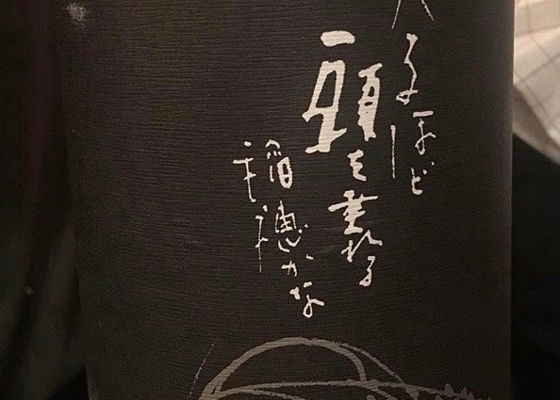 るほど
頭を垂れる
稲穂かな